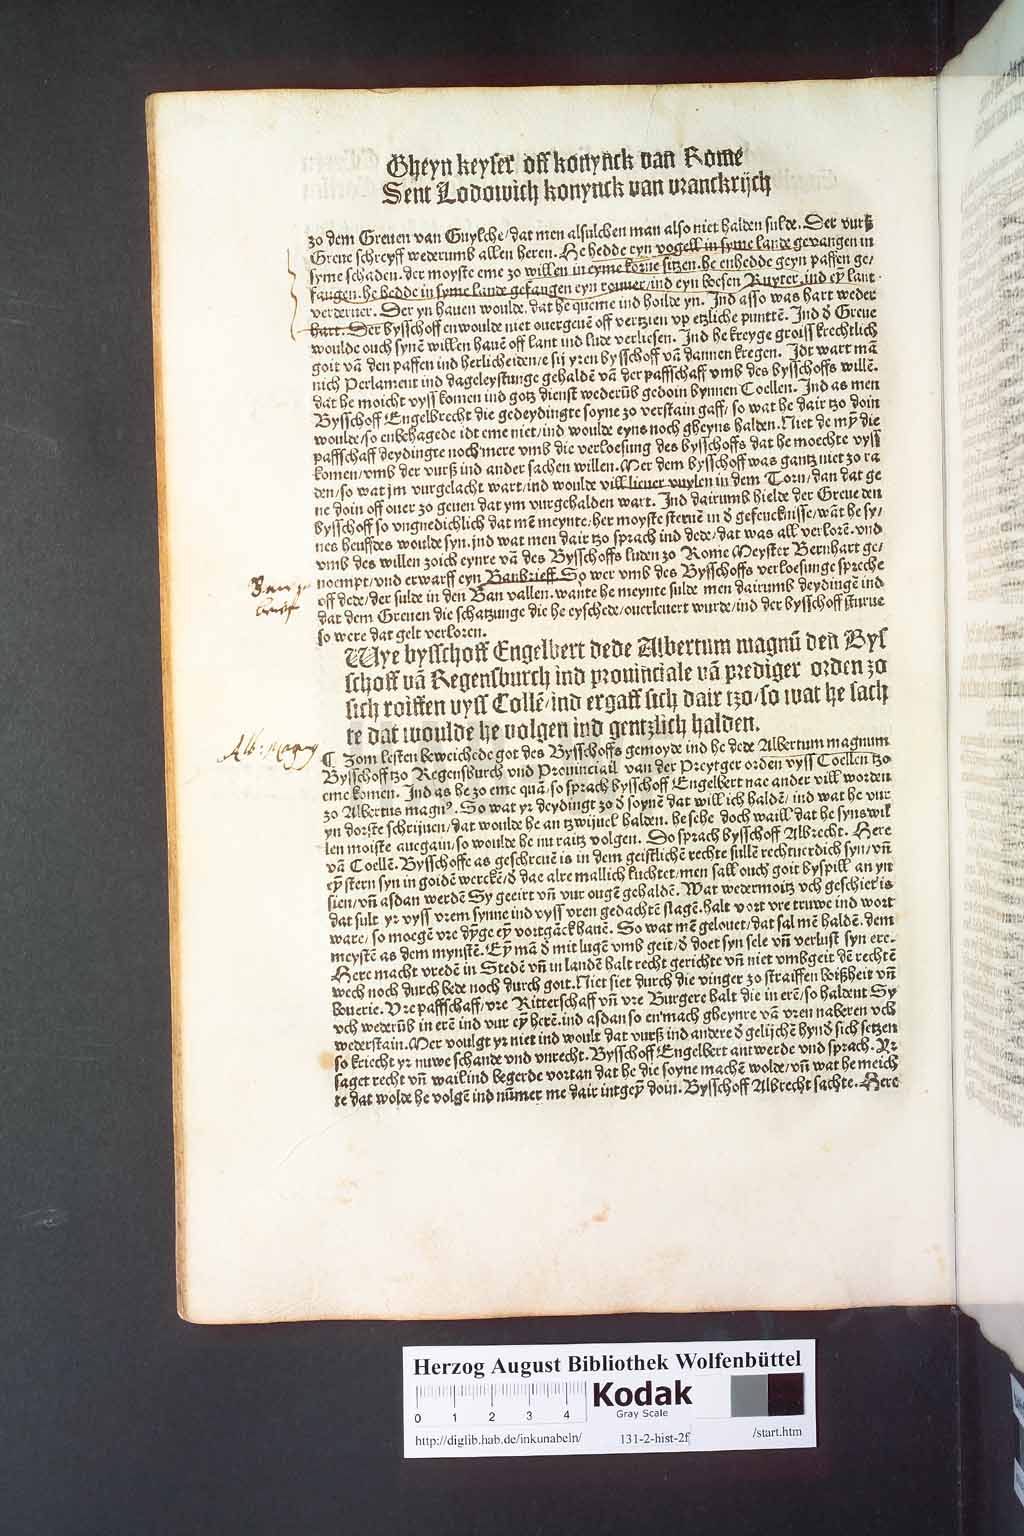 Gheyn keyser off konynck van Rome
Sent Lodowich konynck van vranckrijch
zo dem Greuen van Guylche/dat men alsulchen man also niet halden sulde. Der vurß
Greue schreyff wederumb allen heren. He hedde eyn vogell in syme lande gevangen in
syme schaden. der moyste eme zo willen in eyme korue sitzen. he enhedde geyn paffen ge/
fangen. he hedde in syme lande gefangen eyn rouuer/ind eyn boesen Ruyter, ind eỹ lant
verderuer. Der yn hauen woulde, dat he queme ind hoilde yn. Ind asso was hart weder
hart. Der bysschoff enwoulde niet ouergeuē off vertzien vp etzliche punttē. Ind d̄ Greue
woulde ouch synē willen hauē off lant ind lude verliesen. Ind he kreyge groiß krechtlich
goit vā den paffen ind herlicheiden/e sij yren bysschoff vā dannen kregen. Idt wart mā
nich Perlament ind dageleystunge gehaldē vā der paffschaff vmb des bysschoffs willē.
dat he moicht vyss komen ind gotz dienst wederūb gedoin bynnen Coellen. Ind as men
Bysschoff Engelbrecht die gedeydingte soyne zo verstain gaff/ so wat he dair tzo doin
woulde/so enbehagede idt eme niet/ind woulde eyns noch gheyns halden. Niet de mỹ die
paffschaff deydingte noch mere vmb die verloesung des bysschoffs dat he moechte vyss
komen/vmb der vurß ind ander sachen willen. Mer dem bysschoff was gantz niet zo ra
den/so wat jm vurgelacht wart/ind woulde vill lieuer vuylen in dem Torn/dan dat ge
ne doin off ouer zo geuen dat ym vurgehalden wart. Ind dairumb hielde der Greue den
bysschoff so vngnedichlich dat mē meynte/her moyste steruē in d̄ gefencknisse/wāt he sy/
nes heuffdes woulde syn. jnd wat men dair tzo sprach ind dede/dat was all verlorē. vnd
vmb des willen zoich eynre vā des Bysschoffs luden zo Rome Meyster Bernhart ge/
noempt/vnd erwarff eyn Banbrieff. So wer vmb des Bysschoffs verloesinge spreche
off dede/der sulde in den Ban vallen. wante he meynte sulde men dairumb deydingē ind
dat dem Greuen die schatzunge die he eyschede/ouerleuert wurde/ind der bysschoff sturue
so were dat gelt verloren.
Wye bysschoff Engelbert dede Albertum magnū den Bys
schoff vā Regensburch ind prouinciale vā prediger orden zo
sich roiffen vyss Collē/ind ergaff sich dair tzo/so wat he sach
te dat woulde he volgen ind gentzlich halden.
Alb: Magn
¶ Zom lesten beweichede got des Bysschoffs gemoyde ind he dede Albertum magnum
Bysschoff tzo Regensburch vnd Prouinciail van der Preytger orden vyss Coellen tzo
eme komen. Ind as he zo eme quā/so sprach bysschoff Engelbert nae ander vill worden
zo Albertus magnꝰ. So wat yr deydingt zo d̄ soynē dat will ich haldē/ind wat he vur
yn dorste schrijuen/dat woulde he an tzwijuel halden. he sehe doch waill dat he syns wil
len moiste auegain/so woulde he nu raitz volgen. Do sprach bysschoff Albrecht. Here
vā Coellē. Bysschoffe as geschreuē is in dem geistlichē rechte sullē rechtuerdich syn/vñ
eỹ stern syn in goidē werckē/d̄ dae alre mallich luchtet/men sall ouch goit byspill an yn
sien/vñ asdan werdē Sy geeirt vñ vur ougē gehaldē. Wat wedermoitz vch geschiet is
dat sult yr vyss vrem synne ind vyss vren gedachtē slagē. halt vort vre truwe ind wort
ware/so moegē vre dỹge eỹ vortgāck hauē. So wat mē gelouet/dat sal mē haldē. dem
meystē as dem mynstē. Eỹ mā d̄ mit lugē vmb geit/d̄ doet syn sele vñ verlust syn ere.
Here macht vredē in Stedē vñ in landē halt recht gerichte vñ niet vmbgeit dē rechtē
wech noch durch bede noch durch goit. Niet siet durch die vinger zo straiffen boißheit vñ
bouerie. Vre paffschaff/vre Ritterschaff vñ vre Burgere halt die in erē/so haldent Sy
vch wederūb in erē ind vur eỹ herē. ind asdan so en mach gheynre vā vren naberen vch
wederstain. Mer voulgt yr niet ind woult dat vurß ind andere d̄ gelijchē hynd̄ sich setzen
so kriecht yr nuwe schande vnd vnrecht. Bysschoff Engelbert antwerde vnd sprach. Yr
saget recht vñ wail ind begerde vortan dat he die soyne machē wolde/vñ wat he meich
te dat wolde he volgē ind nūmer me dair intgeỹ doin. Bysschoff Albrecht sachte. Here
Herzog August Bibliothek Wolfenbüttel
0 1 2 3 4
Kodak
Gray Scale
http://diglib.hab.de/inkunabeln/ 131-2-hist-2f /start.htm